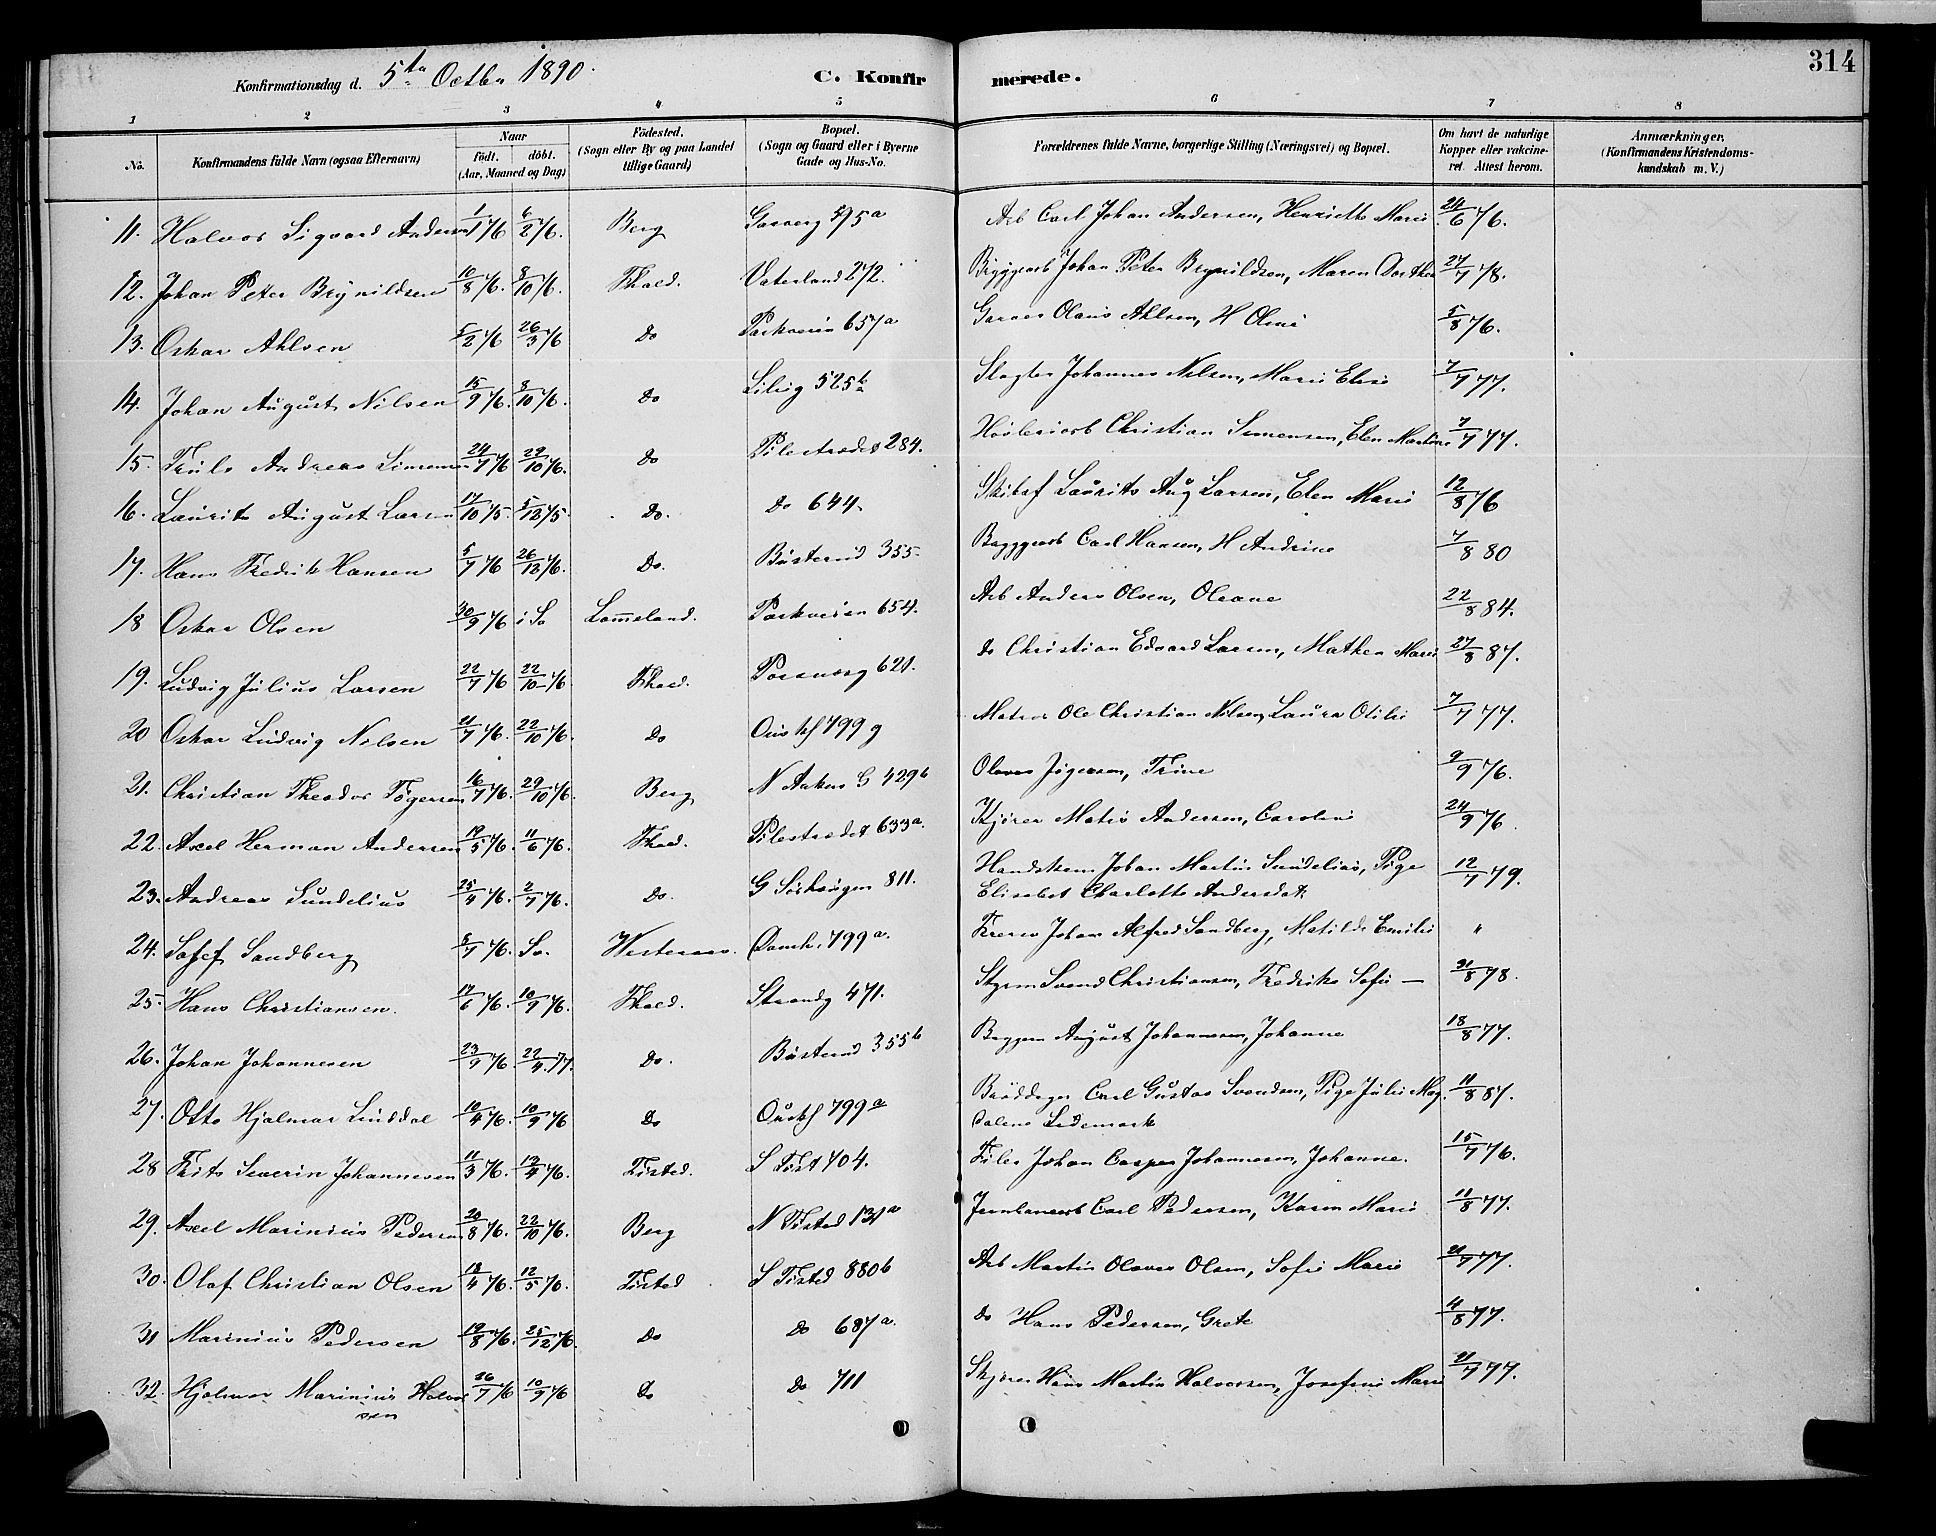 314
Konfirmationsdag d. 5te Octbr 1890.
C. Konfirmerede.
1 2 3 4 5 6 7 8
No.
Konfirmandens fulde Navn (ogsaa Efternavn)
Naar
födt. döbt.
(Aar, Maaned og Dag)
Födested.
(Sogn eller By og paa Landet
tillige Gaard)
Bopæl.
(Sogn og Gaard eller i Byerne
Gade og Hus-No.
Forældrenes fulde Navne, borgerlige Stilling (Næringsvei) og Bopæl.
Om havt de naturlige
Kopper eller vakcine-
ret. Attest herom.
Anmærkninger.
(Konfirmandens Kristendoms-
kundskab m. V.)
11. Halvor Sigvard Andersen 1/1 76 6/2 76. Berg 595a Arb Carl Johan Andersen, Henriette Marie 24/6 76.
12. Johan Peter Brynildsen 10/8 76. 8/10 76. Fhald. Vaterland 272. Byggearb Johan Peter Brynildsen, Maren Dorthea 27/7 78.
13. Oskar Ahlsen 5/2 76 26/3 76 Do Parkveien 657a Garver Olaus Ahlsen, H Oline 5/8 76.
14. Johan August Nilsen 15/9 76. 8/10 76. Do 525b Slagter Johannes Nilsen, Marie Elise 7/7 77.
15. Truls Andreas Simensen 24/7 76 29/10 76. Do Pilestrædet 284. Høvleriarb Christian Simensen, Elen Martine 7/7 77.
16. Laurits August Larsen 17/10 75. 5/12 75. Do. Do 644. Skibsf Laurits Aug Larsen, Elen Marie 12/8 76
17. Hans Fredrik Hansen 5/7 76 26/12 76. Do. Busterud 355. Byggearb Carl Hansen, H Andrine 7/8 80
18 Oskar Olsen 30/9 76 i So Lomeland. Parkveien 654. Arb Anders Olsen, Oleane 22/8 84.
19. Ludvig Julius Larsen 22/7 76 22/10 76 Fhald. 621. do Christian Edvard Larsen, Mathea Marie 27/8 87.
20 Oskar Ludvig Nilsen 21/7 76. 22/10 76. Do 799 g Matros Ole Christian Nilsen, Laura Otilie 7/7 77.
21. Christian Theodor Jögensen 16/7 76. 29/10 76. Berg N Ankers G 429b Olaves Jögensen, Trine 9/9 76.
22. Axel Herman Andersen 19/5 76. 11/6 76. Fhald. Pilestrædet 633a. Kjører Matis Andersen, Caroline 24/9 76
23. Andreas Sundelius 25/4 76. 2/7 76. Do. G 811. Handskem Johan Martin Sundelius, Pige
Elisabet Charlotte Andersdat: 12/7 79.
24. Josef Sandberg 5/7 76. So. Westeraas. Damh. 799a. Johan Alfred Sandberg, Matilde Emilie "
25. Hans Christiansen. 17/6 76. 10/9 76. Fhald. Strandg 471. Styrm Svend Christiansen, Fredrikke Sofie — 31/8 78.
26. Johan Johannesen 23/9 76. 22/4 77. Do. Busterud 355b August Johannesen, Johanne 18/8 77.
27. Otto Hjalmar Linddal 10/4 76. 10/9 76 Do 799a Carl Gustav Svendsen, Pige Julie Mag
dalene Lidemark 11/8 87.
28 Frits Severin Johannesen 11/3 76. 17/4 76. Tisted. S Tist 704. Filer Johan Casper Johannesen, Johanne. 15/7 76.
29. Axel Marinius Pedersen 20/8 76. 22/10 76. Berg N Tisted 131a Jernbanearb Carl Pedersen, Karen Marie 11/8 77.
30. Olaf Christian Olsen 18/4 76. 12/5 76. Tisted S Tisted 880b Arb Martin Olaves Olsen, Sofie Marie 21/7 77.
31 Marinius Pedersen 19/8 76. 25/12 76. Do Do 687a. do Hans Pedersen, Grete 4/8 77.
32. Hjalmar Marinius Halvor
sen 26/7 76 10/9 76 Do Do 711 Hans Martin Halvorsen, Josefine Marie 21/7 77.